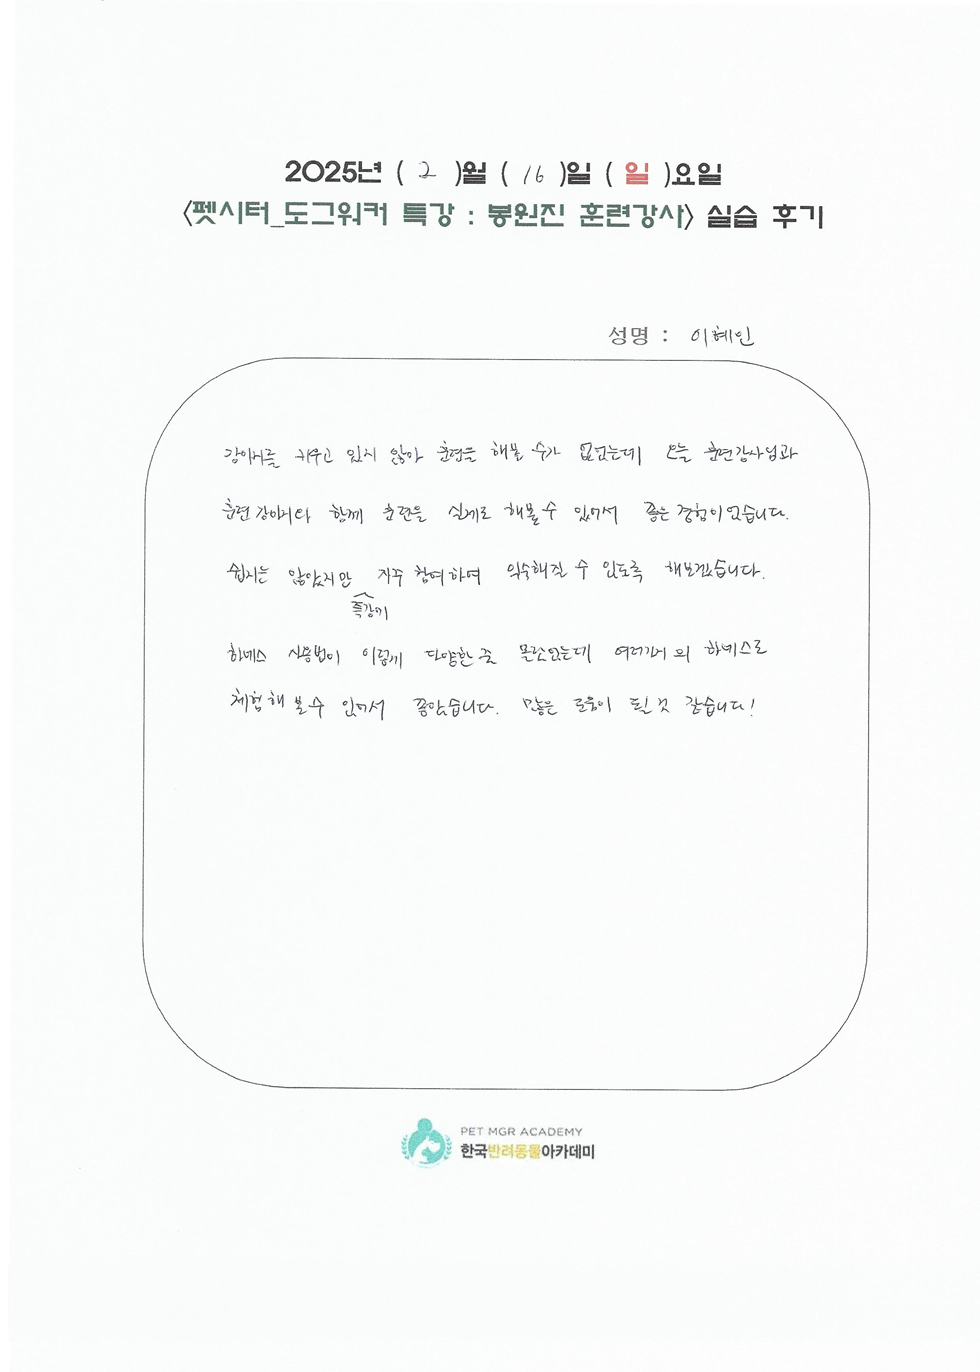 2025년 ( 2 )월 ( 16 )일 ( 일 )요일
<펫시터_도그워커 특강 : 봉원진 훈련강사> 실습 후기
성명 : 이혜인
강아지를 키우고 있지 않아 훈련을 해볼 수가 없었는데 오늘 훈련강사님과
훈련강아지와 함께 훈련을 실제로 해볼 수 있어서 좋은 경험이었습니다.
쉽지는 않았지만 자꾸 참여하며 익숙해질 수 있도록 해보겠습니다.
특강에
하네스 사용법이 이렇게 다양한 줄 몰랐었는데 여러가지의 하네스로
체험해 볼 수 있어서 좋았습니다. 많은 도움이 될 것 같습니다!
PET MGR ACADEMY
한국반려동물아카데미